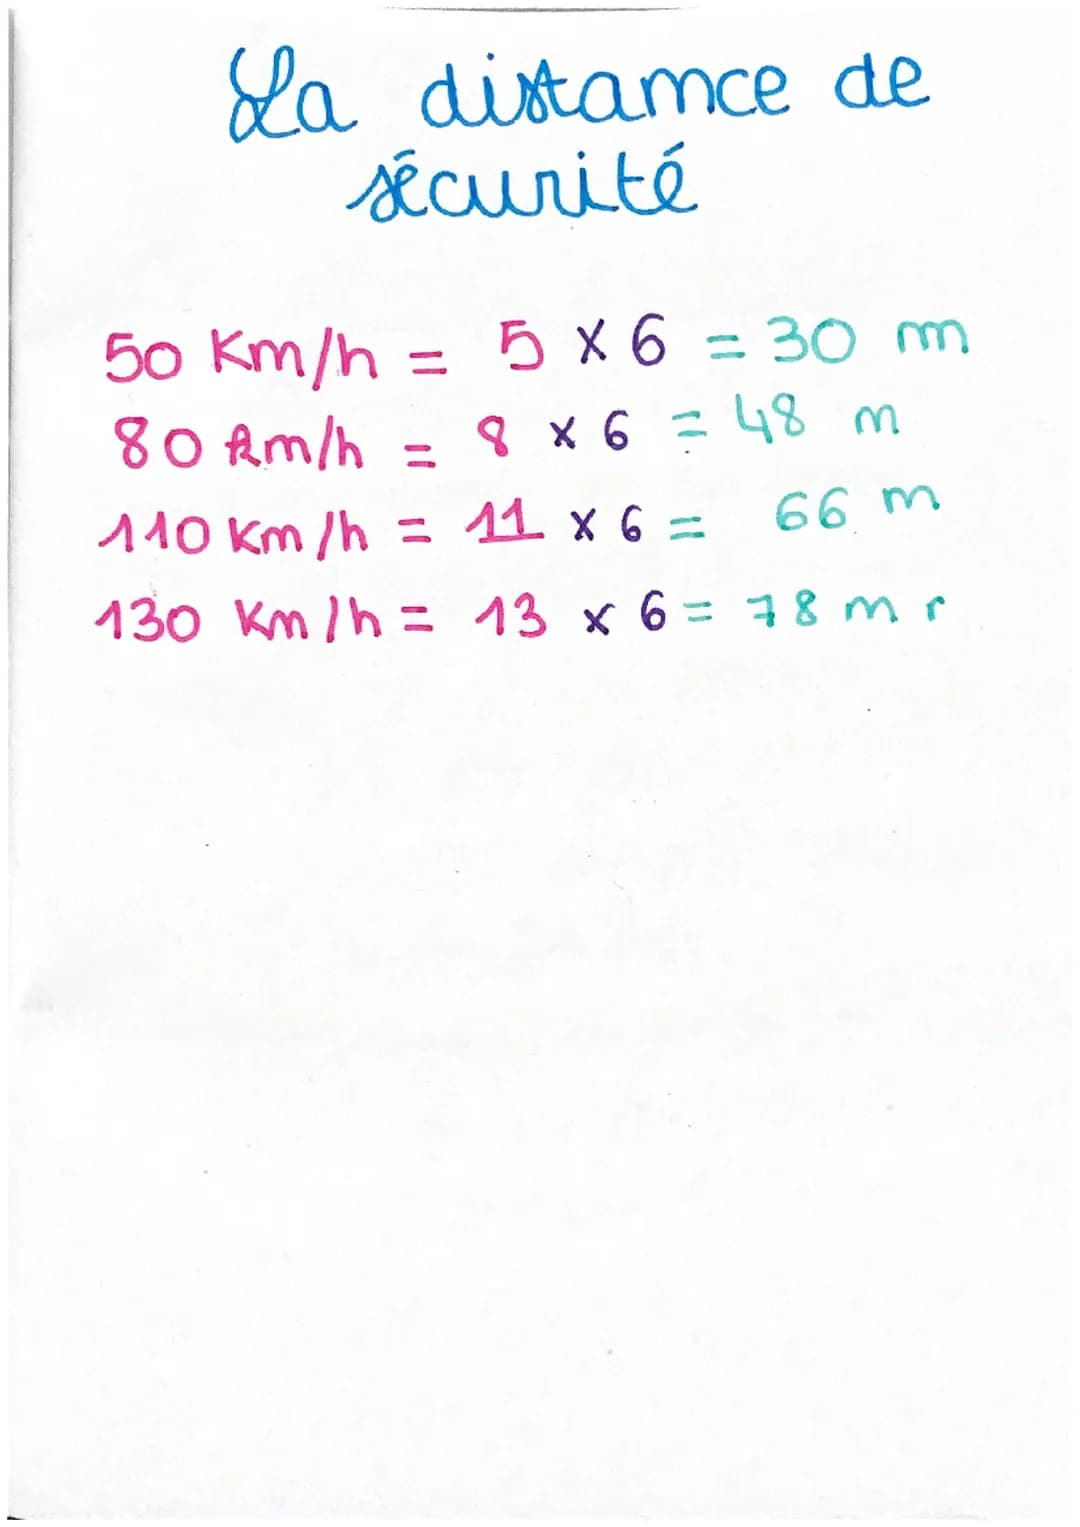 La distamce de
sécurité
50 Km/h = 5 x 6 = 30 m
80 km/h = 8 x 6 = 48 m
110 Km/h = 11 x 6 = 66 m
130 Km/h = 13 x 6 = 78 m r